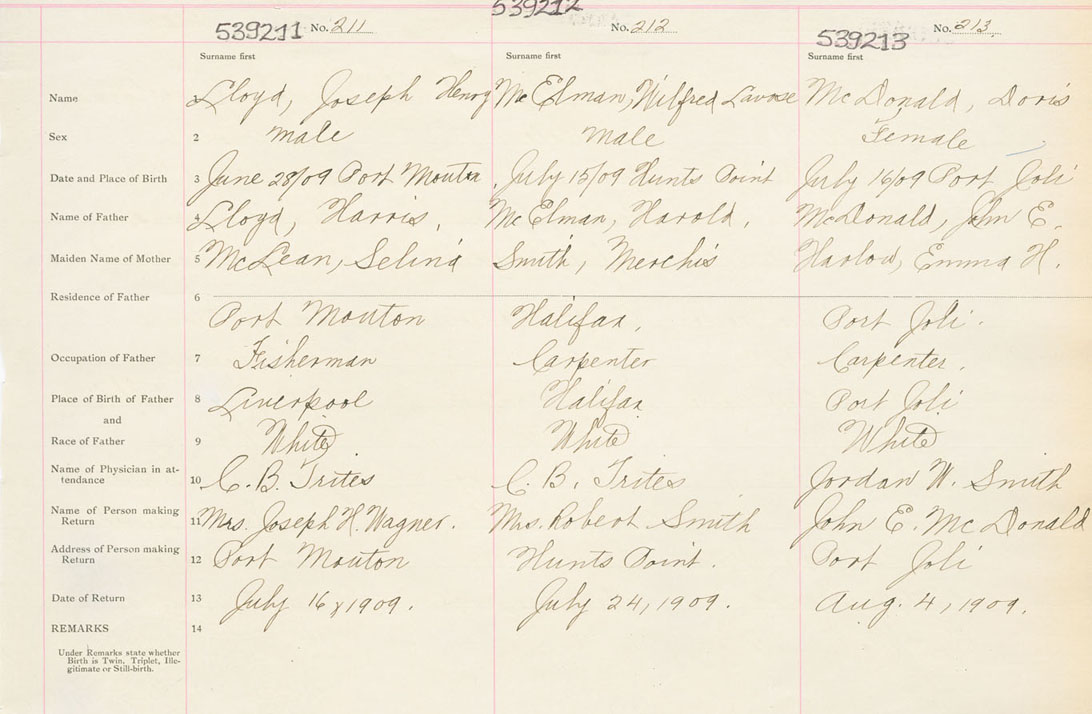 539211 No. 211 539212 No. 212 539213 No. 213
Surname first Surname first Surname first
Name Lloyd, Joseph Henry McElman, Wilfred Lavose McDonald, Doris
Sex 2 male male Female
Date and Place of Birth 3 June 28/09 Port Mouton July 15/09 Hunts Point July 16/09 Port Joli
Name of Father 4 Lloyd, Harris. McElman, Harold. McDonald, John E.
Maiden Name of Mother 5 McLean, Selina Smith, Merchis Harlow, Emma H.
Residence of Father 6
Port Mouton Halifax. Port Joli.
Occupation of Father 7 Fisherman Carpenter Carpenter.
Place of Birth of Father 8 Liverpool Halifax Port Joli
and
Race of Father 9 White White White
Name of Physician in at-
tendance 10 C. B. Trites C. B. Trites Jordan W. Smith
Name of Person making
Return 11 Mrs. Joseph H. Wagner. Mrs. Robert Smith John E. McDonald
Address of Person making
Return 12 Port Mouton Hunts Point. Port Joli
Date of Return 13 July 16, 1909. July 24, 1909. Aug. 4, 1909.
REMARKS 14
Under Remarks state whether
Birth is Twin, Triplet, Ille-
gitimate or Still-birth.